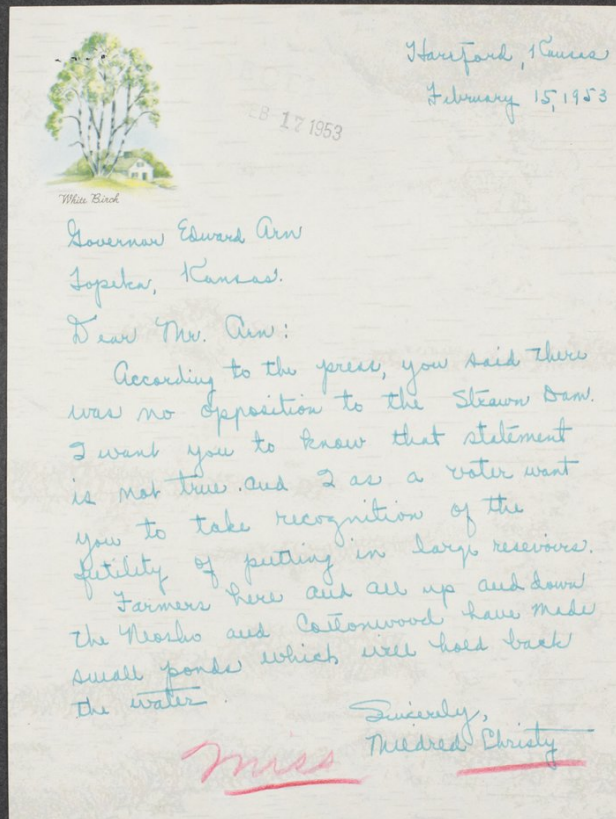 Hartford, Kansas
February 15, 1953
EB 17 1953
White Birch
Governor Edward Arn
Topeka, Kansas.
Dear Mr. Arn:
According to the press, you said there
was no opposition to the Strawn Dam.
I want you to know that statement
is not true and I as a voter want
you to take recognition of the
futility of putting in large resevoirs.
Farmers here and all up and down
the Neosho and Cottonwood have made
small ponds which will hold back
the water.
Sincerely,
Mildred Christy
Miss